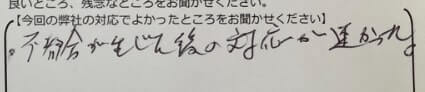 良いところ、残念なところをお聞かせください。
【今回の弊社の対応でよかったところをお聞かせください】
不都合が生じた後の対応が速かった。